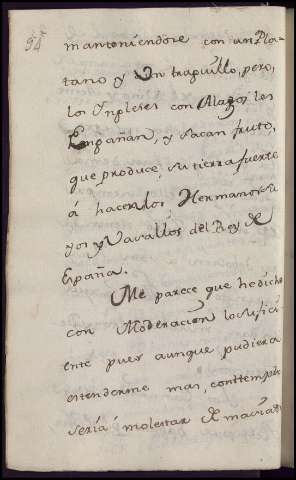 94
manteniendose con un Pla-
tano y Un trapuillo, pero,
los Ynpleses con Alagos les
Enpañan, y Sacan fruto,
que produce, su tierra fuerte
á hacerlos Hermanos su
yos y Vasallos del Rey de
España.
Me parece que hedicho
con Moderacion losufici
ente pues aunque pudiera
estenderme mas, conttemplo
sería molestar demaciado